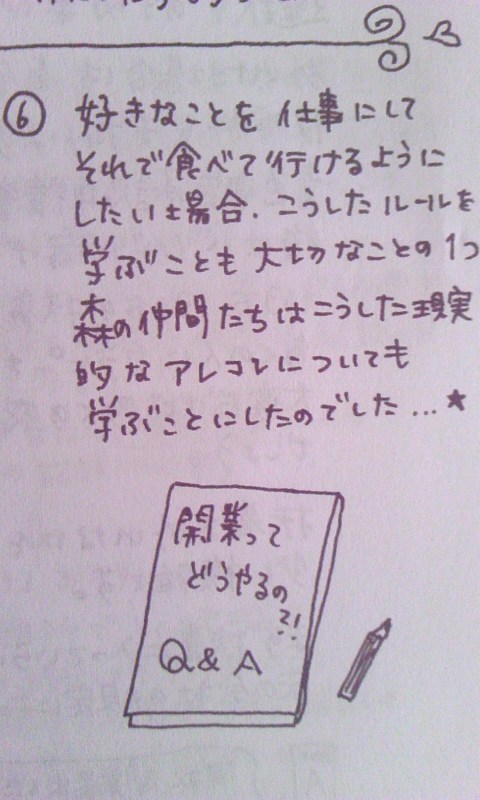 ⑥ 好きなことを仕事にして
それで食べて行けるように
したい場合.こうしたルールを
学ぶことも大切なことの1つ
森の仲間たちはこうした現実
的なアレコレについても
学ぶことにしたのでした…★
開業って
どうやるの
?!
Q&A